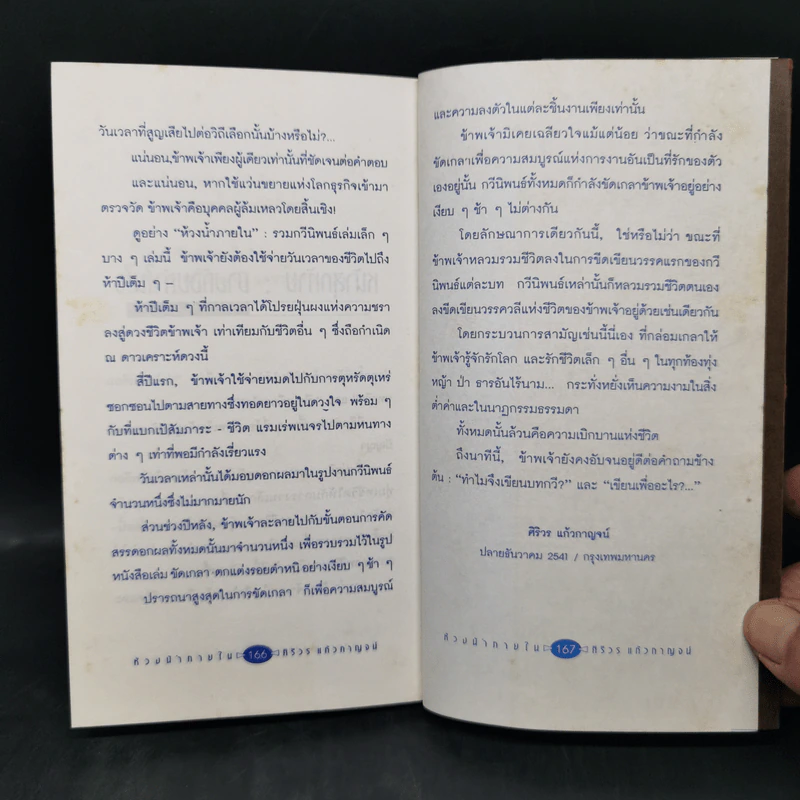 วันเวลาที่สูญเสียไปต่อวิถีเลือกนั้นบ้างหรือไม่?...
แน่นอน,ข้าพเจ้าเพียงผู้เดียวเท่านั้นที่ชัดเจนต่อคำตอบ
และแน่นอน, หากใช้แว่นขยายแห่งโลกธุรกิจเข้ามา
ตรวจวัด ข้าพเจ้าคือบุคคลผู้ล้มเหลวโดยสิ้นเชิง!
ดูอย่าง “ห้วงน้ำภายใน” : รวมกวีนิพนธ์เล่มเล็ก ๆ
บาง ๆ เล่มนี้ ข้าพเจ้ายังต้องใช้จ่ายวันเวลาของชีวิตไปถึง
ห้าปีเต็ม ๆ –
ห้าปีเต็ม ๆ ที่กาลเวลาได้โปรยฝุ่นผงแห่งความชรา
ลงสู่ดวงชีวิตข้าพเจ้า เท่าเทียมกับชีวิตอื่น ๆ ซึ่งถือกำเนิด
ณ ดาวเคราะห์ดวงนี้
สี่ปีแรก, ข้าพเจ้าใช้จ่ายหมดไปกับการตุหรัดตุเหร่
ซอกซอนไปตามสายทางซึ่งทอดยาวอยู่ในดวงใจ พร้อม ๆ
กับที่แบกเป้สัมภาระ - ชีวิต แรมเร่พเนจรไปตามหนทาง
ต่าง ๆ เท่าที่พอมีกำลังเรี่ยวแรง
วันเวลาเหล่านั้นได้มอบดอกผลมาในรูปงานกวีนิพนธ์
จำนวนหนึ่งซึ่งไม่มากมายนัก
ส่วนช่วงปีหลัง, ข้าพเจ้าละลายไปกับขั้นตอนการคัด
สรรดอกผลทั้งหมดนั้นมาจำนวนหนึ่ง เพื่อรวบรวมไว้ในรูป
หนังสือเล่ม ขัดเกลา ตกแต่งรอยตำหนิ อย่างเงียบ ๆ ช้า ๆ
ปรารถนาสูงสุดในการขัดเกลา ก็เพื่อความสมบูรณ์
ห้วงน้ำภายใน 166 ศิริวร แก้วกาญจน์
และความลงตัวในแต่ละชิ้นงานเพียงเท่านั้น
ข้าพเจ้ามิเคยเฉลียวใจแม้แต่น้อย ว่าขณะที่กำลัง
ขัดเกลาเพื่อความสมบูรณ์แห่งการงานอันเป็นที่รักของตัว
เองอยู่นั้น กวีนิพนธ์ทั้งหมดก็กำลังขัดเกลาข้าพเจ้าอยู่อย่าง
เงียบ ๆ ช้า ๆ ไม่ต่างกัน
โดยลักษณาการเดียวกันนี้, ใช่หรือไม่ว่า ขณะที่
ข้าพเจ้าหลวมรวมชีวิตลงในการขีดเขียนวรรคแรกของกวี
นิพนธ์แต่ละบท กวีนิพนธ์เหล่านั้นก็หลวมรวมชีวิตตนเอง
ลงขีดเขียนวรรควลีแห่งชีวิตของข้าพเจ้าอยู่ด้วยเช่นเดียวกัน
โดยกระบวนการสามัญเช่นนี้นี่เอง ที่กล่อมเกลาให้
ข้าพเจ้ารู้จักรักโลก และรักชีวิตเล็ก ๆ อื่น ๆ ในทุกท้องทุ่ง
หญ้า ป่า ธารอันไร้นาม... กระทั่งหยั่งเห็นความงามในสิ่ง
ต่ำค่าและในนาฏกรรมธรรมดา
ทั้งหมดนั้นล้วนคือความเบิกบานแห่งชีวิต
ถึงนาทีนี้, ข้าพเจ้ายังคงอับจนอยู่ดีต่อคำถามข้าง
ต้น : “ทำไมจึงเขียนบทกวี?” และ “เขียนเพื่ออะไร?...”
ศิริวร แก้วกาญจน์
ปลายธันวาคม 2541 / กรุงเทพมหานคร
ห้วงน้ำภายใน 167 ศิริวร แก้วกาญจน์